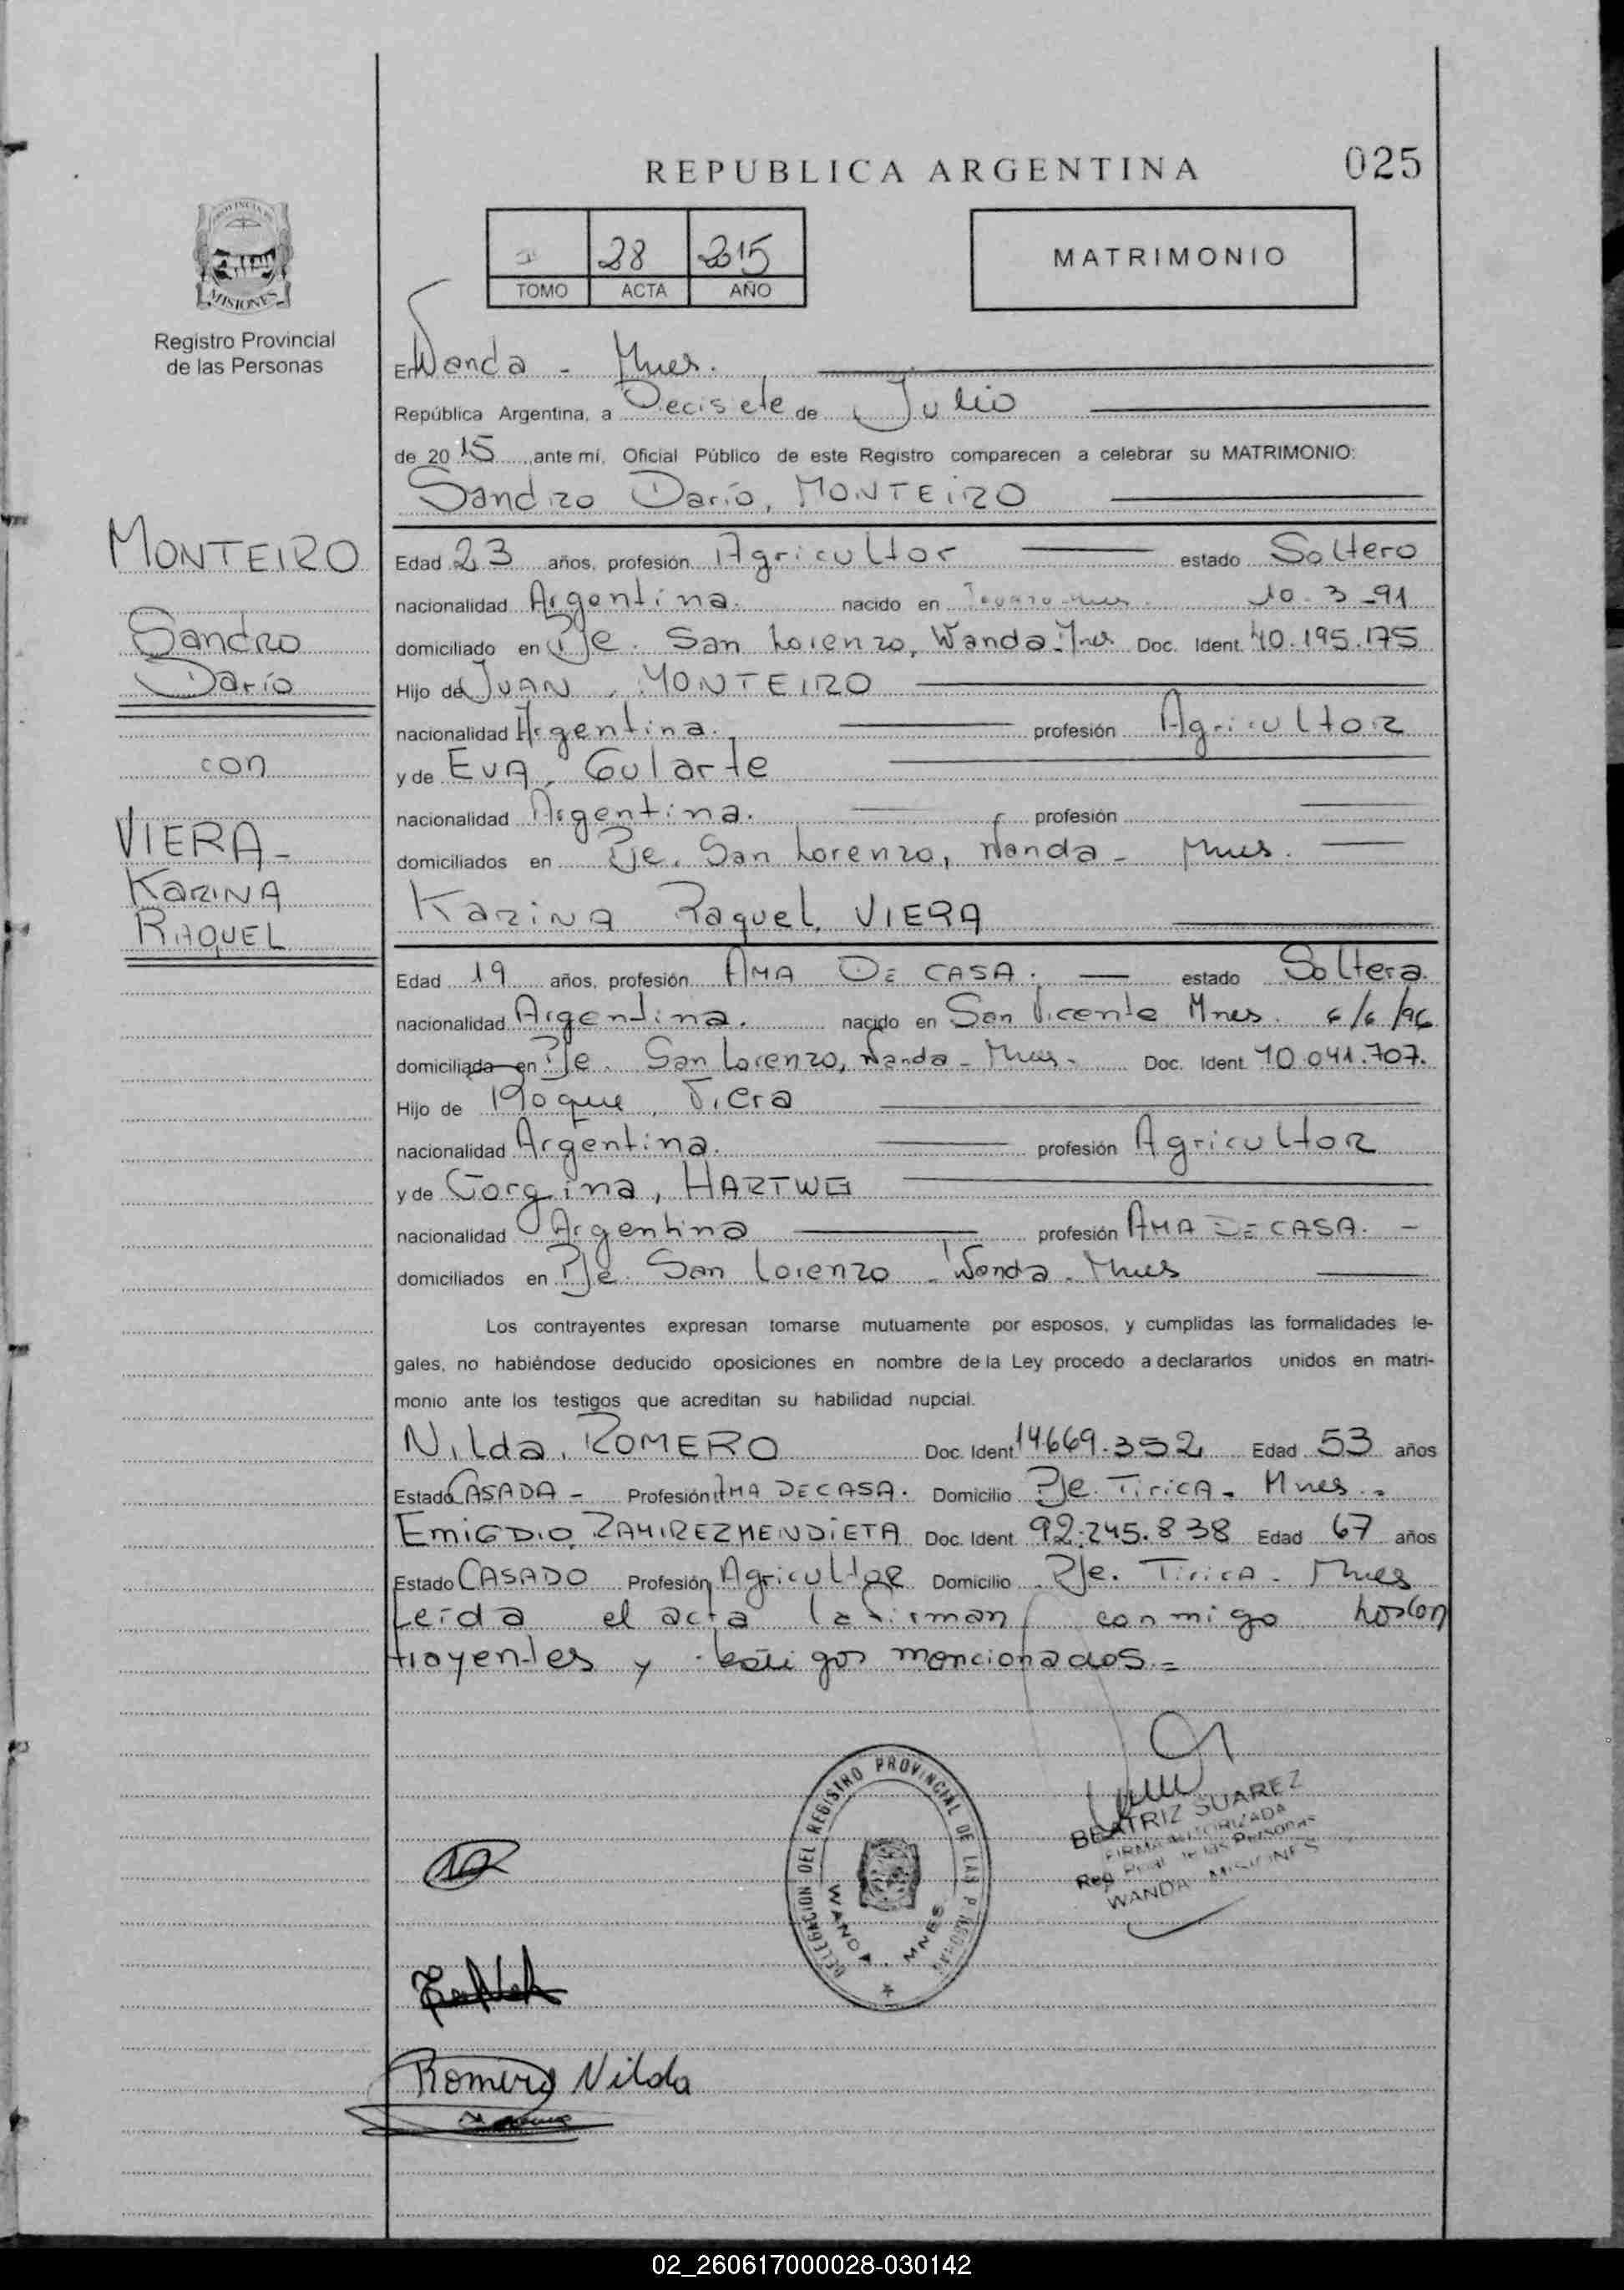 REPUBLICA ARGENTINA
025
28 2015
TOMO ACTA AÑO
MATRIMONIO
PROVINCIA DE
MISIONES
Registro Provincial
de las Personas
En Wanda - Mnes.
República Argentina, a Diecisiete de Julio
de 20 15 , ante mí, Oficial Público de este Registro comparecen a celebrar su MATRIMONIO:
Sandro Darío, MONTEIRO
MONTEIRO
Sandro
Darío
con
VIERA -
KARINA
RAQUEL
Edad 23 años, profesión Agricultor estado Soltero
nacionalidad Argentina. nacido en 10-3-91
domiciliado en Pje. San Lorenzo, Wanda-Mnes Doc. Ident. 40.195.175
Hijo de JUAN, MONTEIRO
nacionalidad Argentina. profesión Agricultor
y de EVA, Gularte
nacionalidad Argentina. profesión
domiciliados en Pje. San Lorenzo, Wanda - Mnes.
Karina Raquel, VIERA
Edad 19 años, profesión AMA DE CASA. estado Soltera.
nacionalidad Argentina. nacido en San Vicente Mnes. 6/6/96
domiciliada en Pje. San Lorenzo, Wanda - Mnes - Doc. Ident. 40.041.707.
Hijo de Roque, Viera
nacionalidad Argentina. profesión Agricultor
y de Gorgina, HARTWG
nacionalidad Argentina profesión AMA DE CASA. -
domiciliados en Pje. San Lorenzo - Wanda - Mnes
Los contrayentes expresan tomarse mutuamente por esposos, y cumplidas las formalidades le-
gales, no habiéndose deducido oposiciones en nombre de la Ley procedo a declararlos unidos en matri-
monio ante los testigos que acreditan su habilidad nupcial.
Nilda, ROMERO Doc. Ident 14.669.352 Edad 53 años
Estado CASADA - Profesión AMA DE CASA. Domicilio Pje. Tirica - Mnes. -
EMIGDIO, RAMIREZ MENDIETA Doc. Ident. 92.245.838 Edad 67 años
Estado CASADO Profesión Agricultor Domicilio Pje. Tirica - Mnes
Leída el acta la firman conmigo los con
trayentes y testigos mencionados. =
DELEGACION DEL REGISTRO PROVINCIAL DE LAS PERSONAS
WANDA - MNES
BEATRIZ SUAREZ
FIRMA AUTORIZADA
Reg. Pcial. de las Personas
WANDA - MISIONES
Romero Nilda
02_260617000028-030142